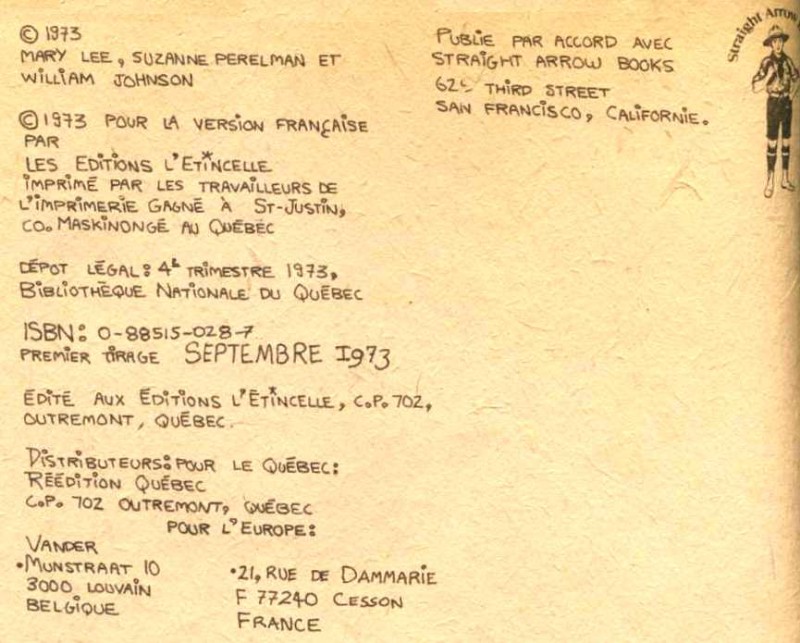 © 1973
MARY LEE, SUZANNE PERELMAN ET
WILLIAM JOHNSON
©1973 POUR LA VERSION FRANÇAISE
PAR
LES EDITIONS L'ETINCELLE
IMPRIMÉ PAR LES TRAVAILLEURS DE
L'IMPRIMERIE GAGNÉ À ST-JUSTIN,
CO. MASKINONGÉ AU QUÉBEC
DÉPOT LÉGAL: 4E TRIMESTRE 1973,
BIBLIOTHÈQUE NATIONALE DU QUÉBEC
ISBN: 0-88515-028-7
PREMIER TIRAGE SEPTEMBRE 1973
ÉDITÉ AUX ÉDITIONS L'ÉTINCELLE, C.P. 702,
OUTREMONT, QUÉBEC.
DISTRIBUTEURS: POUR LE QUÉBEC:
RÉÉDITION QUÉBEC
C.P. 702 OUTREMONT, QUÉBEC
POUR L'EUROPE:
VANDER
•MUNSTRAAT 10
3000 LOUVAIN
BELGIQUE
•21, RUE DE DAMMARIE
F 77240 CESSON
FRANCE
PUBLIE PAR ACCORD AVEC
STRAIGHT ARROW BOOKS
THIRD STREET
SAN FRANCISCO, CALIFORNIE.
Straight Arrow